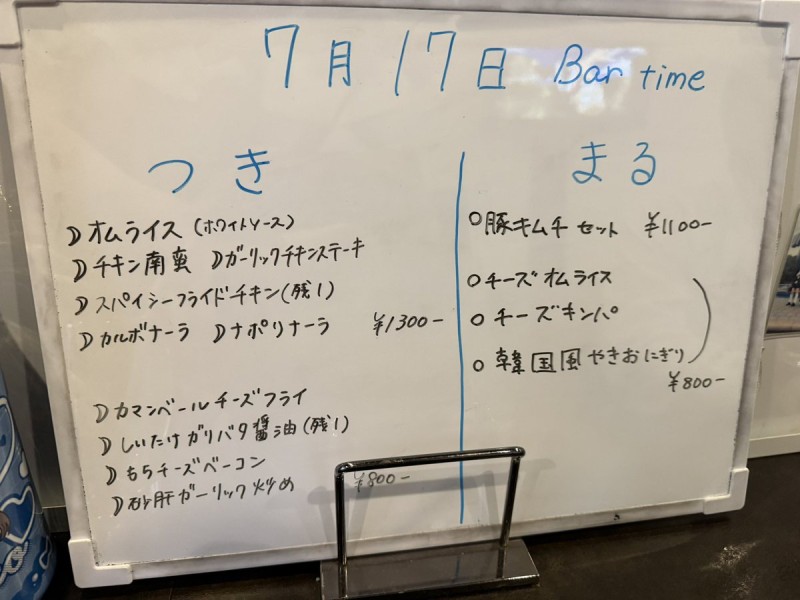 7月17日 Bar time
つき
☽オムライス(ホワイトソース)
☽チキン南蛮 ☽ガーリックチキンステーキ
☽スパイシーフライドチキン(残1)
☽カルボナーラ ☽ナポリナーラ ¥1300-
☽カマンベールチーズフライ
☽しいたけガリバタ醤油(残1)
☽もちチーズベーコン
☽砂肝ガーリック炒め ¥800-
まる
○豚キムチセット ¥1100-
○チーズオムライス
○チーズキンパ
○韓国風やきおにぎり
¥800-